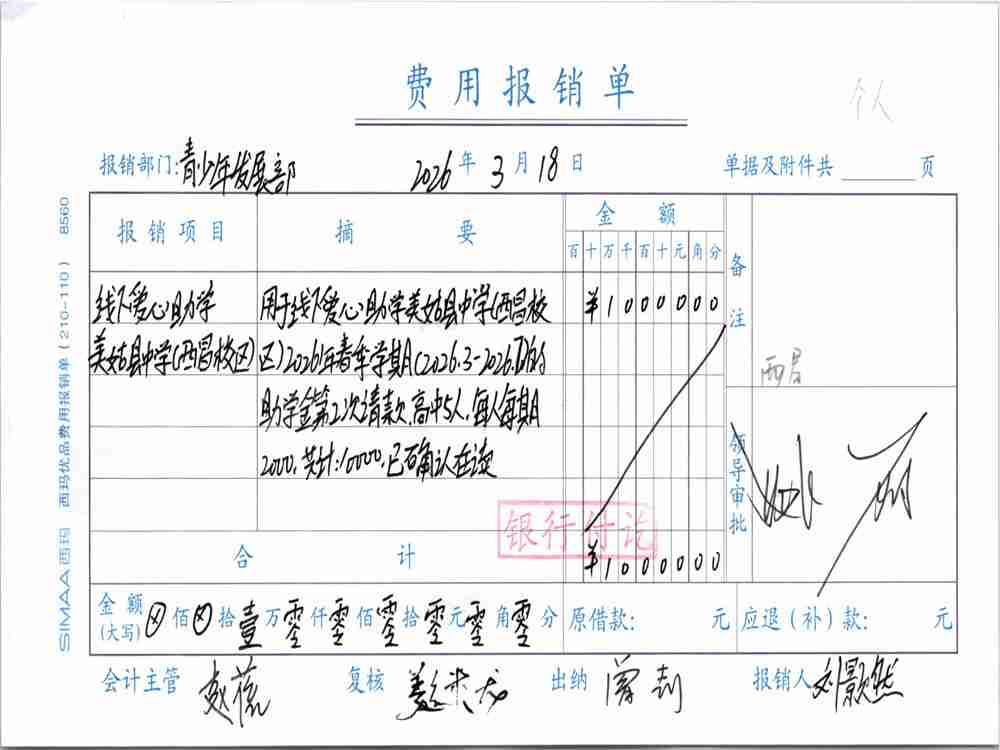 费用报销单
个人
报销部门:青少年发展部 2026年3月18日 单据及附件共 页
报销项目 摘要 金额 备注
百十万千百十元角分
线下爱心助学 用于线下爱心助学美姑县中学(西昌校 ¥1000000
美姑县中学(西昌校区) 区)2026年春季学期(2026.3-2026.7)的
西昌
助学金第2次请款,高中5人,每人每期
2000,共计:10000,已确认在读
领导审批
银行付讫
合计 ¥1000000
金额(大写) ⊗佰⊗拾壹万零仟零佰零拾零元零角零分 原借款: 元 应退(补)款: 元
会计主管 复核 出纳 报销人 刘景然
SIMAA西玛 西玛优品费用报销单(210-110) 8560